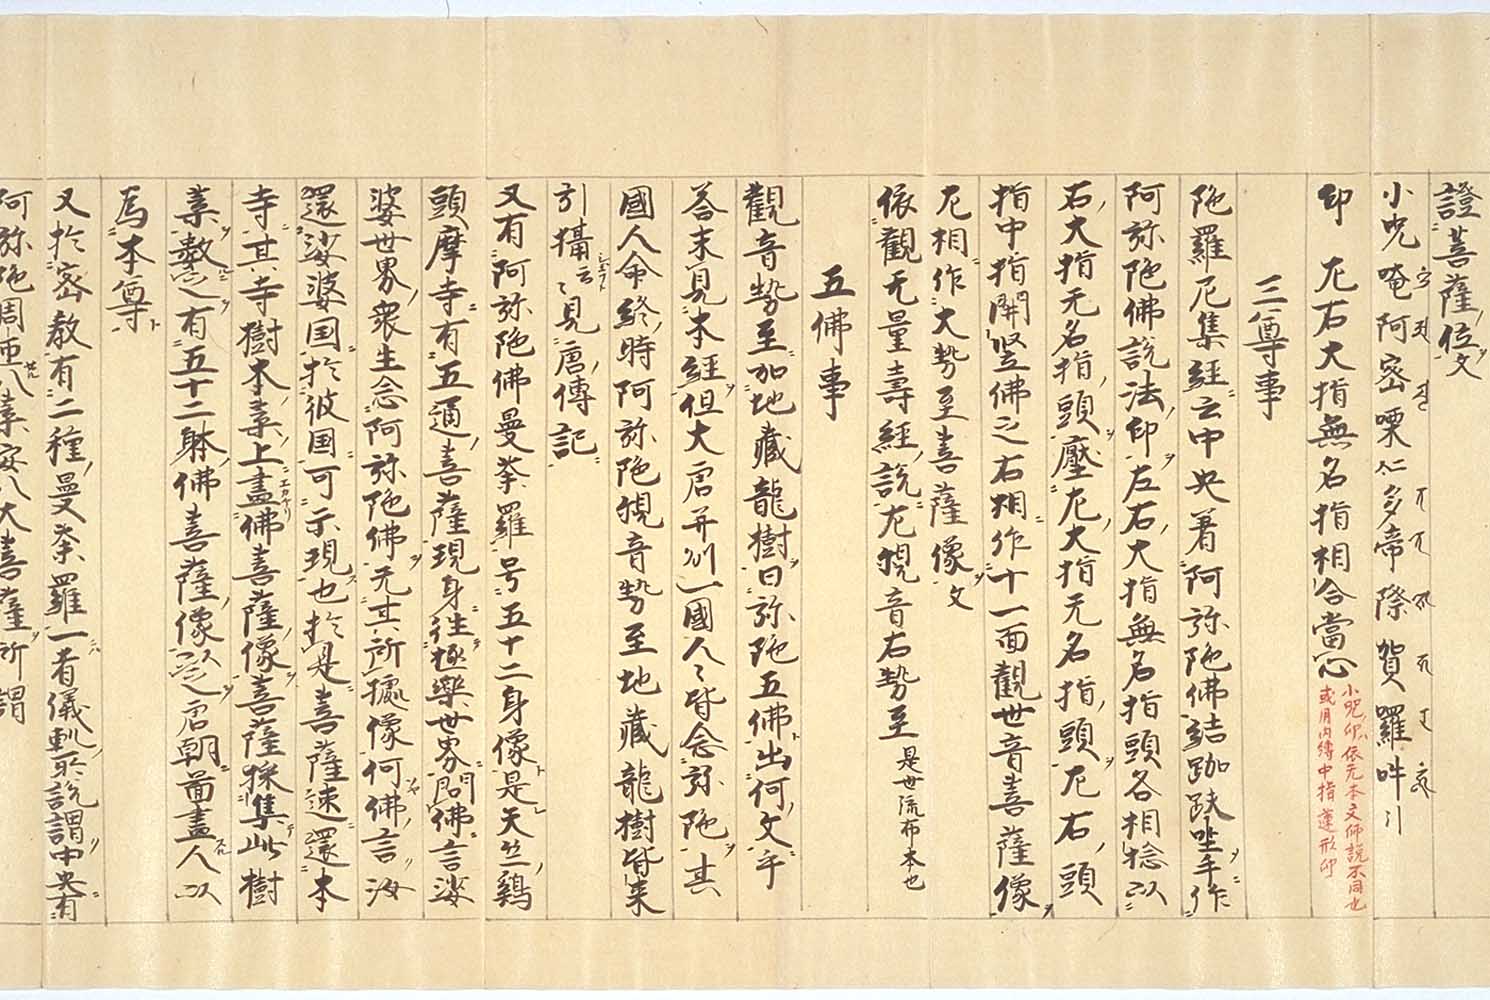 證菩薩位文
小呪唵阿密㗚仁多帝際賀羅吽引
印 左右大指無名指相合當心
小呪印依元本文師説不同也
或用内縛中指蓮形印
三尊事
陁羅尼集經云中央著阿弥陁佛結跏趺坐手作
阿弥陁佛説法印左右大指無名指頭各相捻以
右大指无名指頭壓左大指无名指頭左右頭
指中指開竪佛之右相作十一面觀世音菩薩像
左相作大勢至菩薩像文
依觀无量壽經説左觀音右勢至 是世流布本也
五佛事
觀音勢至加地藏龍樹曰弥陁五佛出何文乎
荅未見本經但大唐并州一國人〻皆念弥陁其
國人命終時阿弥陁觀音勢至地藏龍樹皆来
引攝云〻見唐傳記
又有阿弥陁佛曼荼羅号五十二身像是天竺鷄
頭摩寺有五通菩薩現身往極樂世界問佛言娑
婆世界衆生念阿弥陁佛无其所據像何佛言汝
還娑婆国於彼国可示現也於是菩薩速還本
寺其寺樹本葉上畫佛菩薩像菩薩採集此樹
葉數之有五十二躰佛菩薩像以之唐朝啚畫人以
為本尊
又於密教有二種曼荼羅一者儀軌所説謂中央有
阿弥陁周匝八葉安八大菩薩所謂